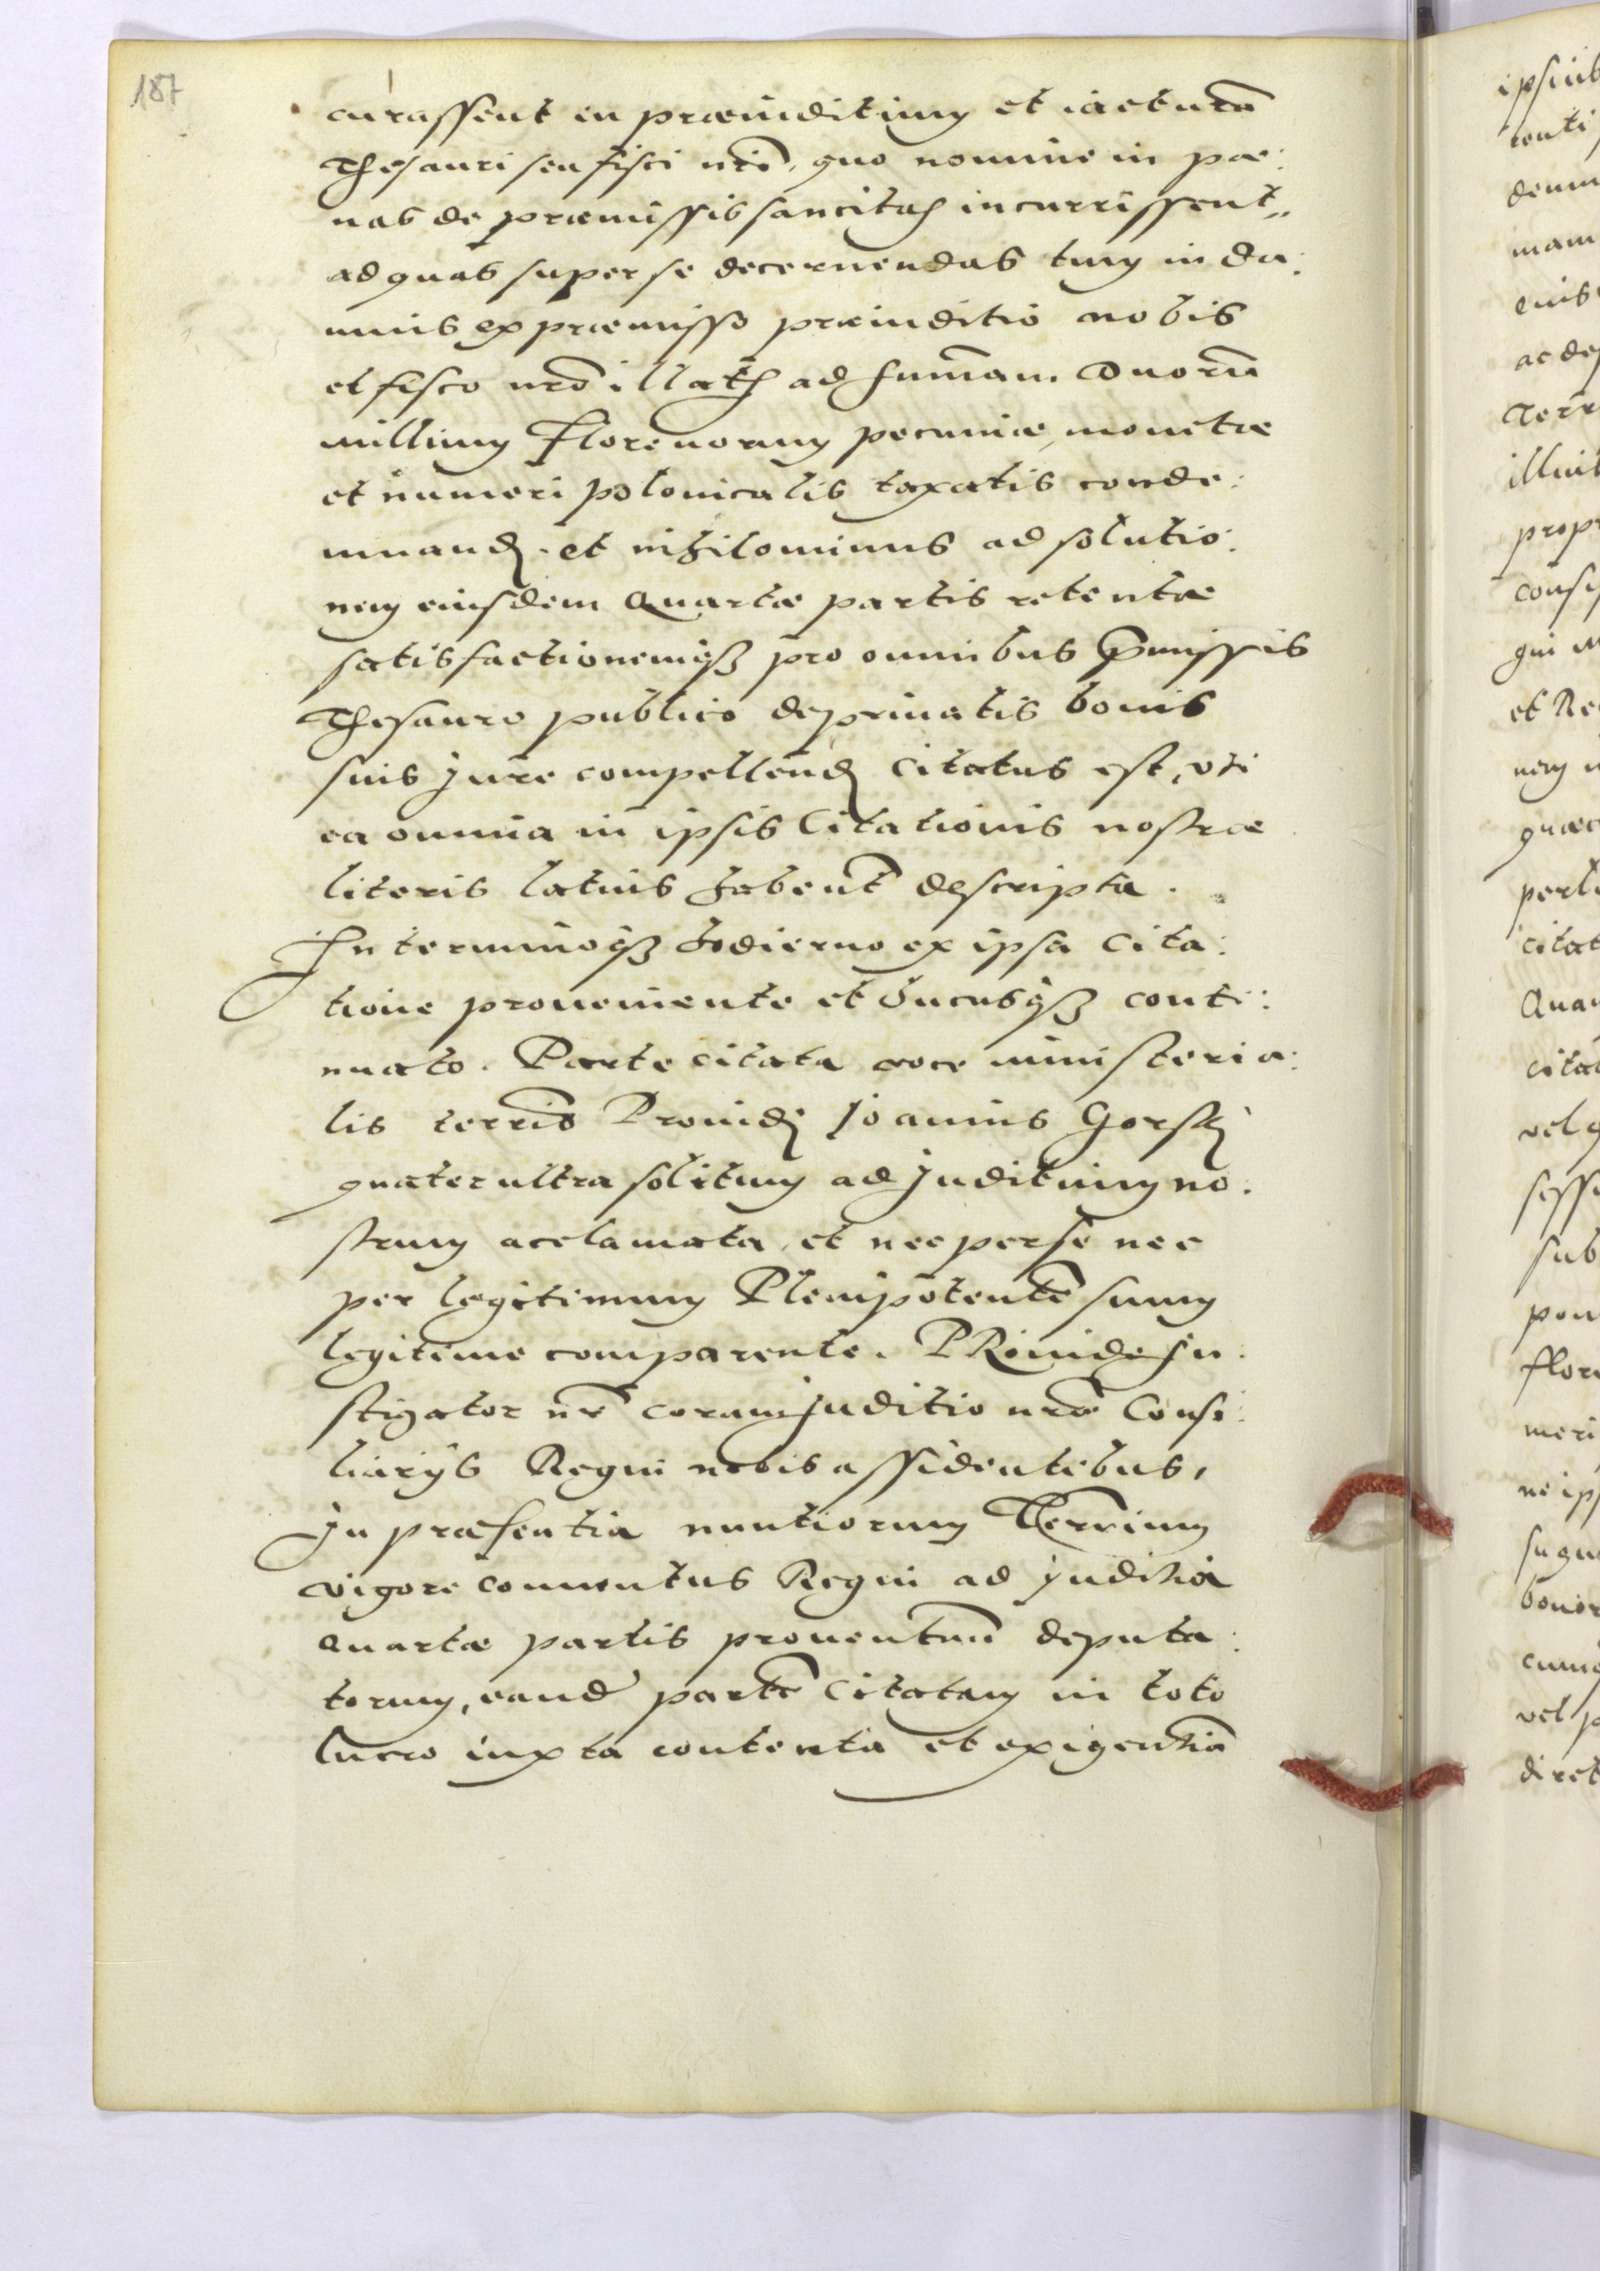 187
curassent in præiuditium et iacturā
Thesauri seu fisci nrī, quo nomine in pæ:
nas de præmissis sancitas incurrissent,,
ad quas super se decernendas tum in da:
mnis ex præmisso præiuditio nobis
et fisco nrō illatis ad summam Duorū
millium Florenorum pecuniæ, monetæ
et numeri polonicalis taxatis conde:
mnand. et nihilominus ad solutio:
nem eiusdem Quartæ partis retentæ
satisfactionemq3 pro omnibus pmissis
Thesauro publico de priuatis bonis
suis Jure compellend Citatus est, vti
ea omnia in ipsis Citationis nostræ
literis latius habent descripta.
In terminoq3 hodierno ex ipsa Cita:
tione proueniente et hucusq3 conti:
nuato. Parte citata voce ministeria:
lis terrīs Prouidi Joannis Gorski
quater ultra solitum ad Juditium no:
strum acclamata, et nec per se nec
per legitimum Plenipotentē suum
legitime comparente. PRouide In:
stigator nr̄ coram Juditio nrō Consi:
liarijs Regni nobis assidentibus,
In præsentia nuntiorum Terrium
vigore conuentus Regni ad Juditia
Quartæ partis prouentuū deputa:
torum, eand partē Citatam in toto
lucro iuxta contenta et exigentiā
ipsius
denu
mam
eius
ac de
Terr
illius
prop
consi
qui
et Re
nem
quæ
citat
Qua
cita
vel q
sub
flor
meri
ne ip
su qu
bonor
vel p
diret